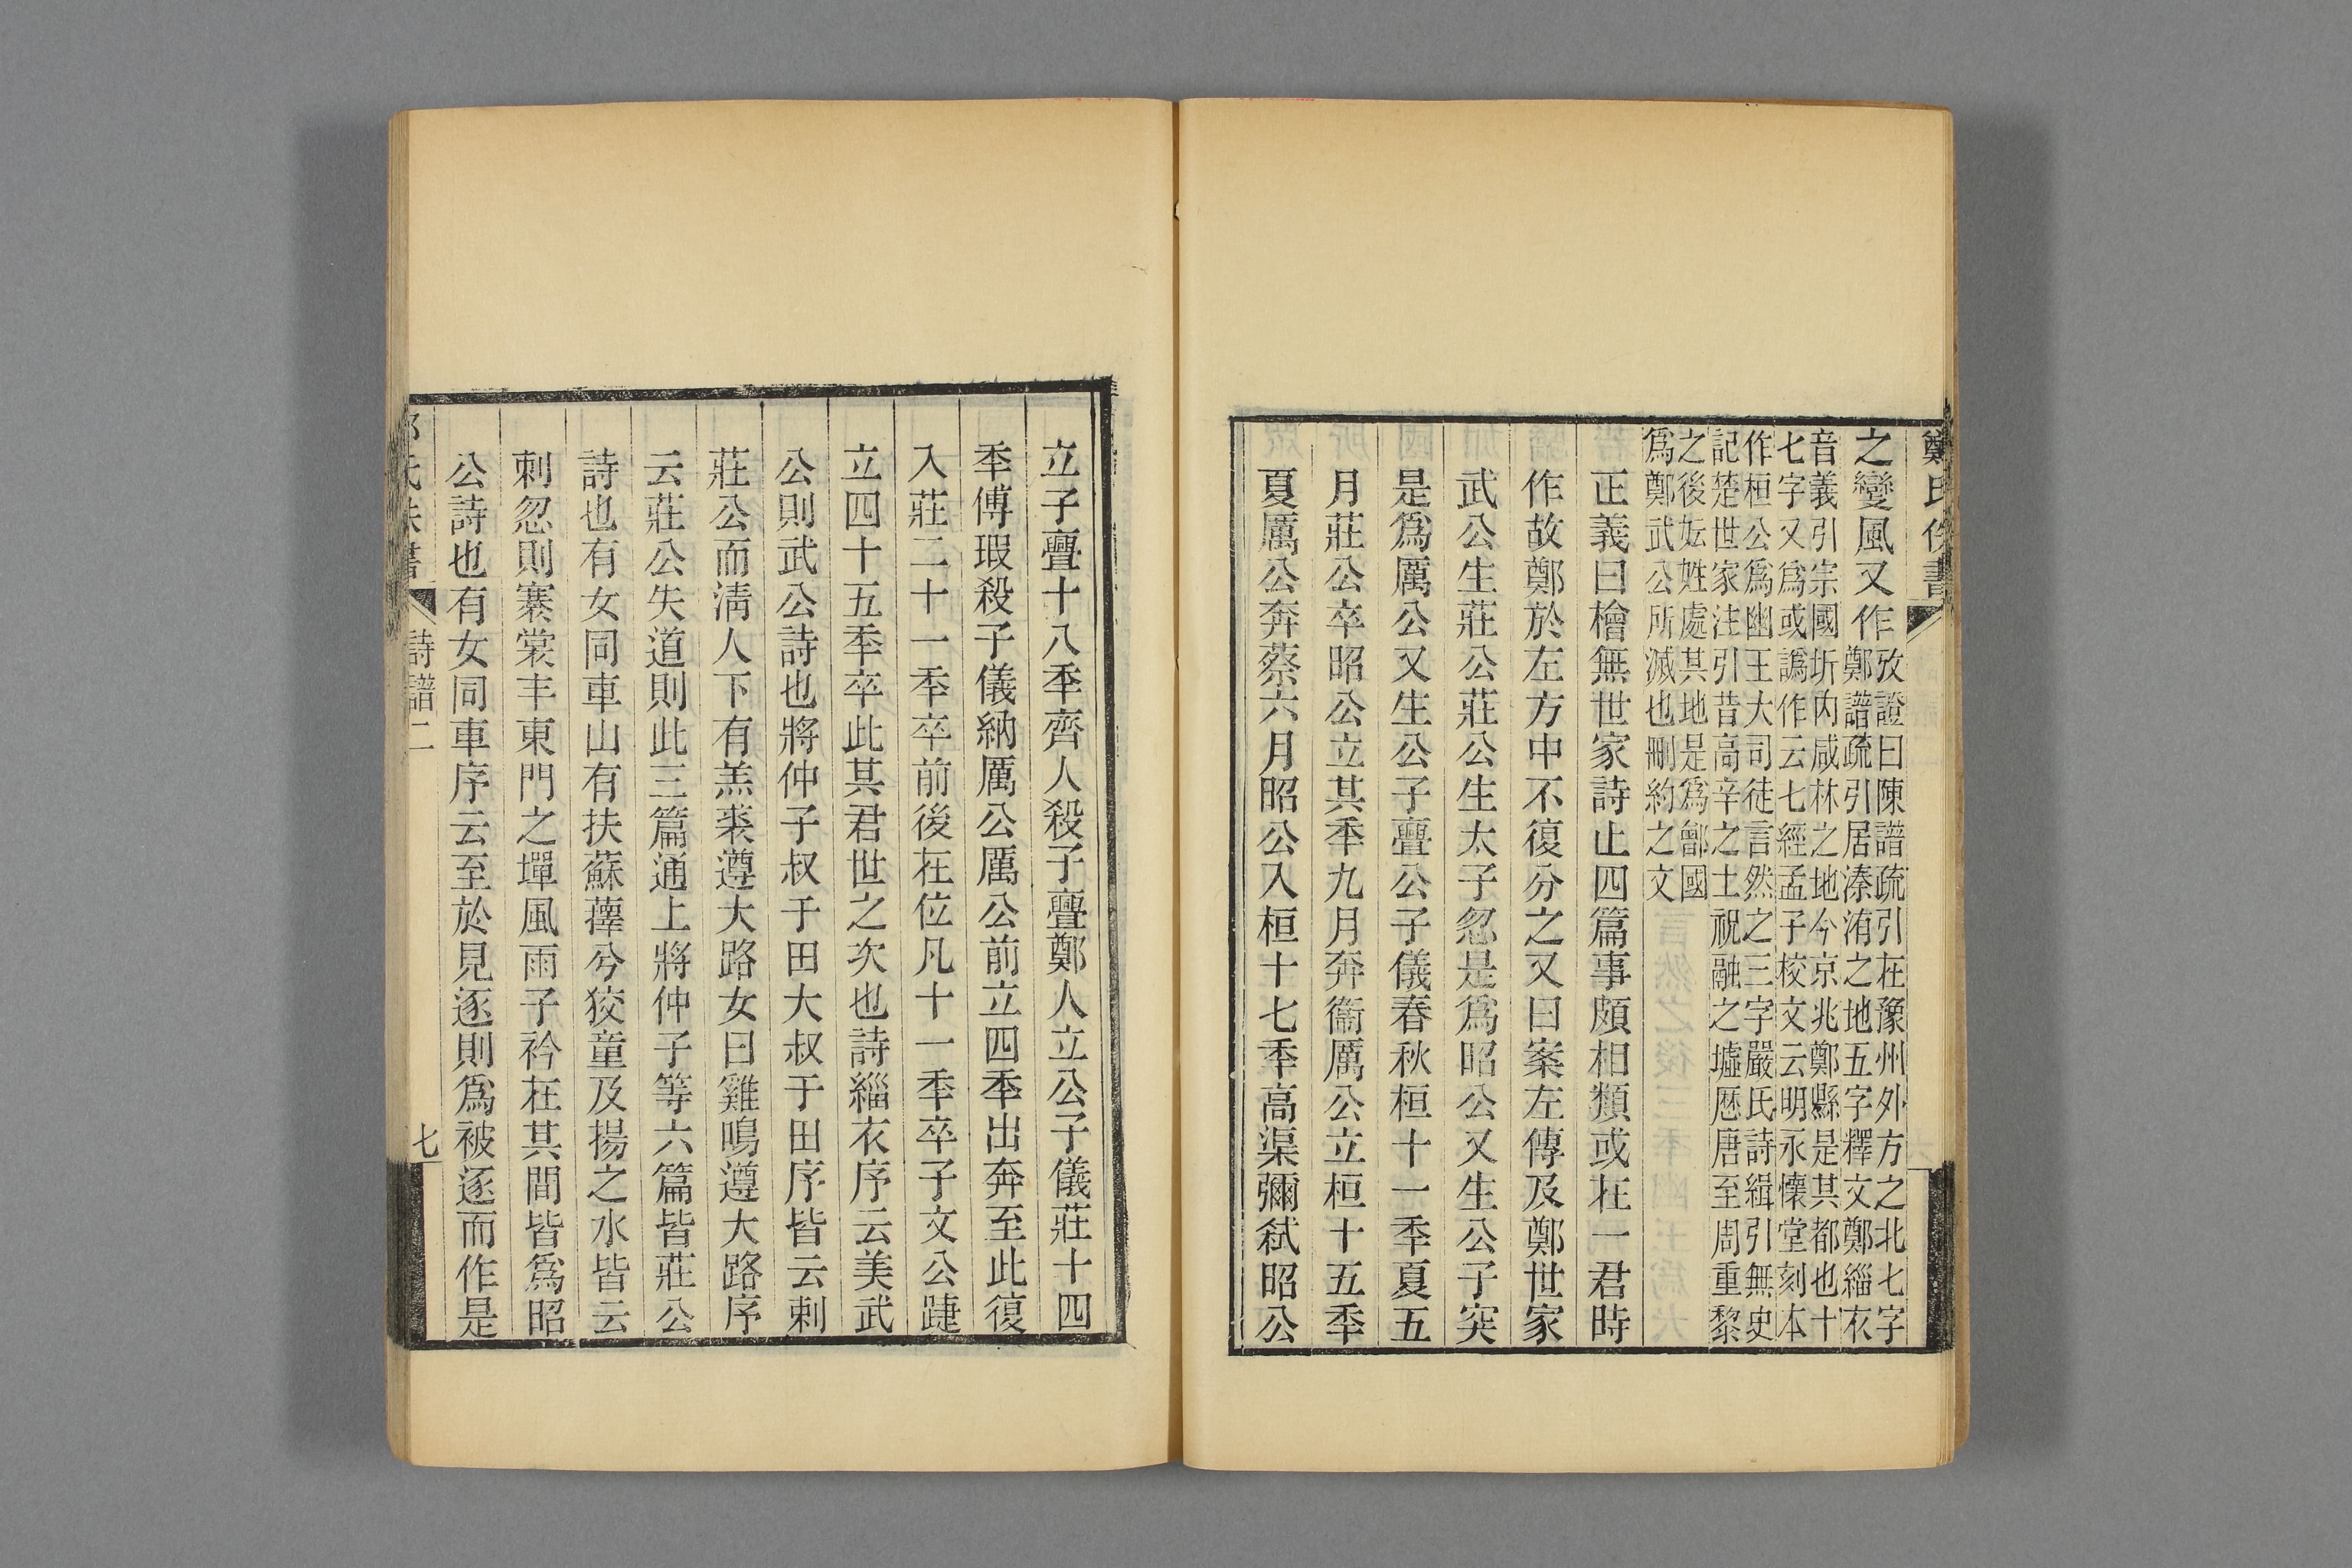 鄭氏佚書
之變風又作攷證曰陳譜疏引在豫州外方之北七字
鄭譜疏引居溱洧之地五字釋文鄭緇衣
音義引宗國圻内咸林之地今京兆鄭縣是其都也十
七字又爲或譌作云七經孟子校文云明永懷堂刻本
作桓公爲幽王大司徒言然之三字嚴氏詩緝引無史
記楚世家注引昔高辛之土祝融之墟歷唐至周重黎
之後妘姓處其地是爲鄶國
爲鄭武公所滅也刪約之文
正義曰檜無世家詩止四篇事頗相類或在一君時
作故鄭於左方中不復分之又曰案左傳及鄭世家
武公生莊公莊公生太子忽是爲昭公又生公子突
是爲厲公又生公子亹公子儀春秋桓十一秊夏五
月莊公卒昭公立其秊九月奔衞厲公立桓十五秊
夏厲公奔蔡六月昭公入桓十七秊高渠彌弒昭公
立子亹十八秊齊人殺子亹鄭人立公子儀莊十四
秊傅瑕殺子儀納厲公厲公前立四秊出奔至此復
入莊二十一秊卒前後在位凡十一秊卒子文公踕
立四十五秊卒此其君世之次也詩緇衣序云美武
公則武公詩也將仲子叔于田大叔于田序皆云刺
莊公而淸人下有羔裘遵大路女曰雞鳴遵大路序
云莊公失道則此三篇通上將仲子等六篇皆莊公
詩也有女同車山有扶蘇蘀兮狡童及揚之水皆云
刺忽則褰裳丰東門之墠風雨子衿在其間皆爲昭
公詩也有女同車序云至於見逐則爲被逐而作是
詩譜二
七